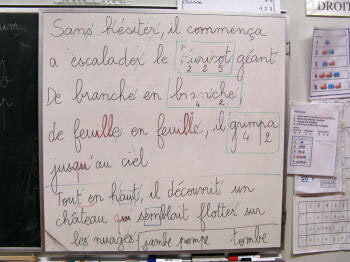 classe
177
127
DROIT
Sans hésiter, il commença
a escalader le haricot géant
2 2 5
De branche en branche,
4 2
de feuille en feuille, il grimpa
4 2
jusqu'au ciel.
Tout en haut, il découvrit un
château qui semblait flotter sur
les nuages. jambe pompe tombe